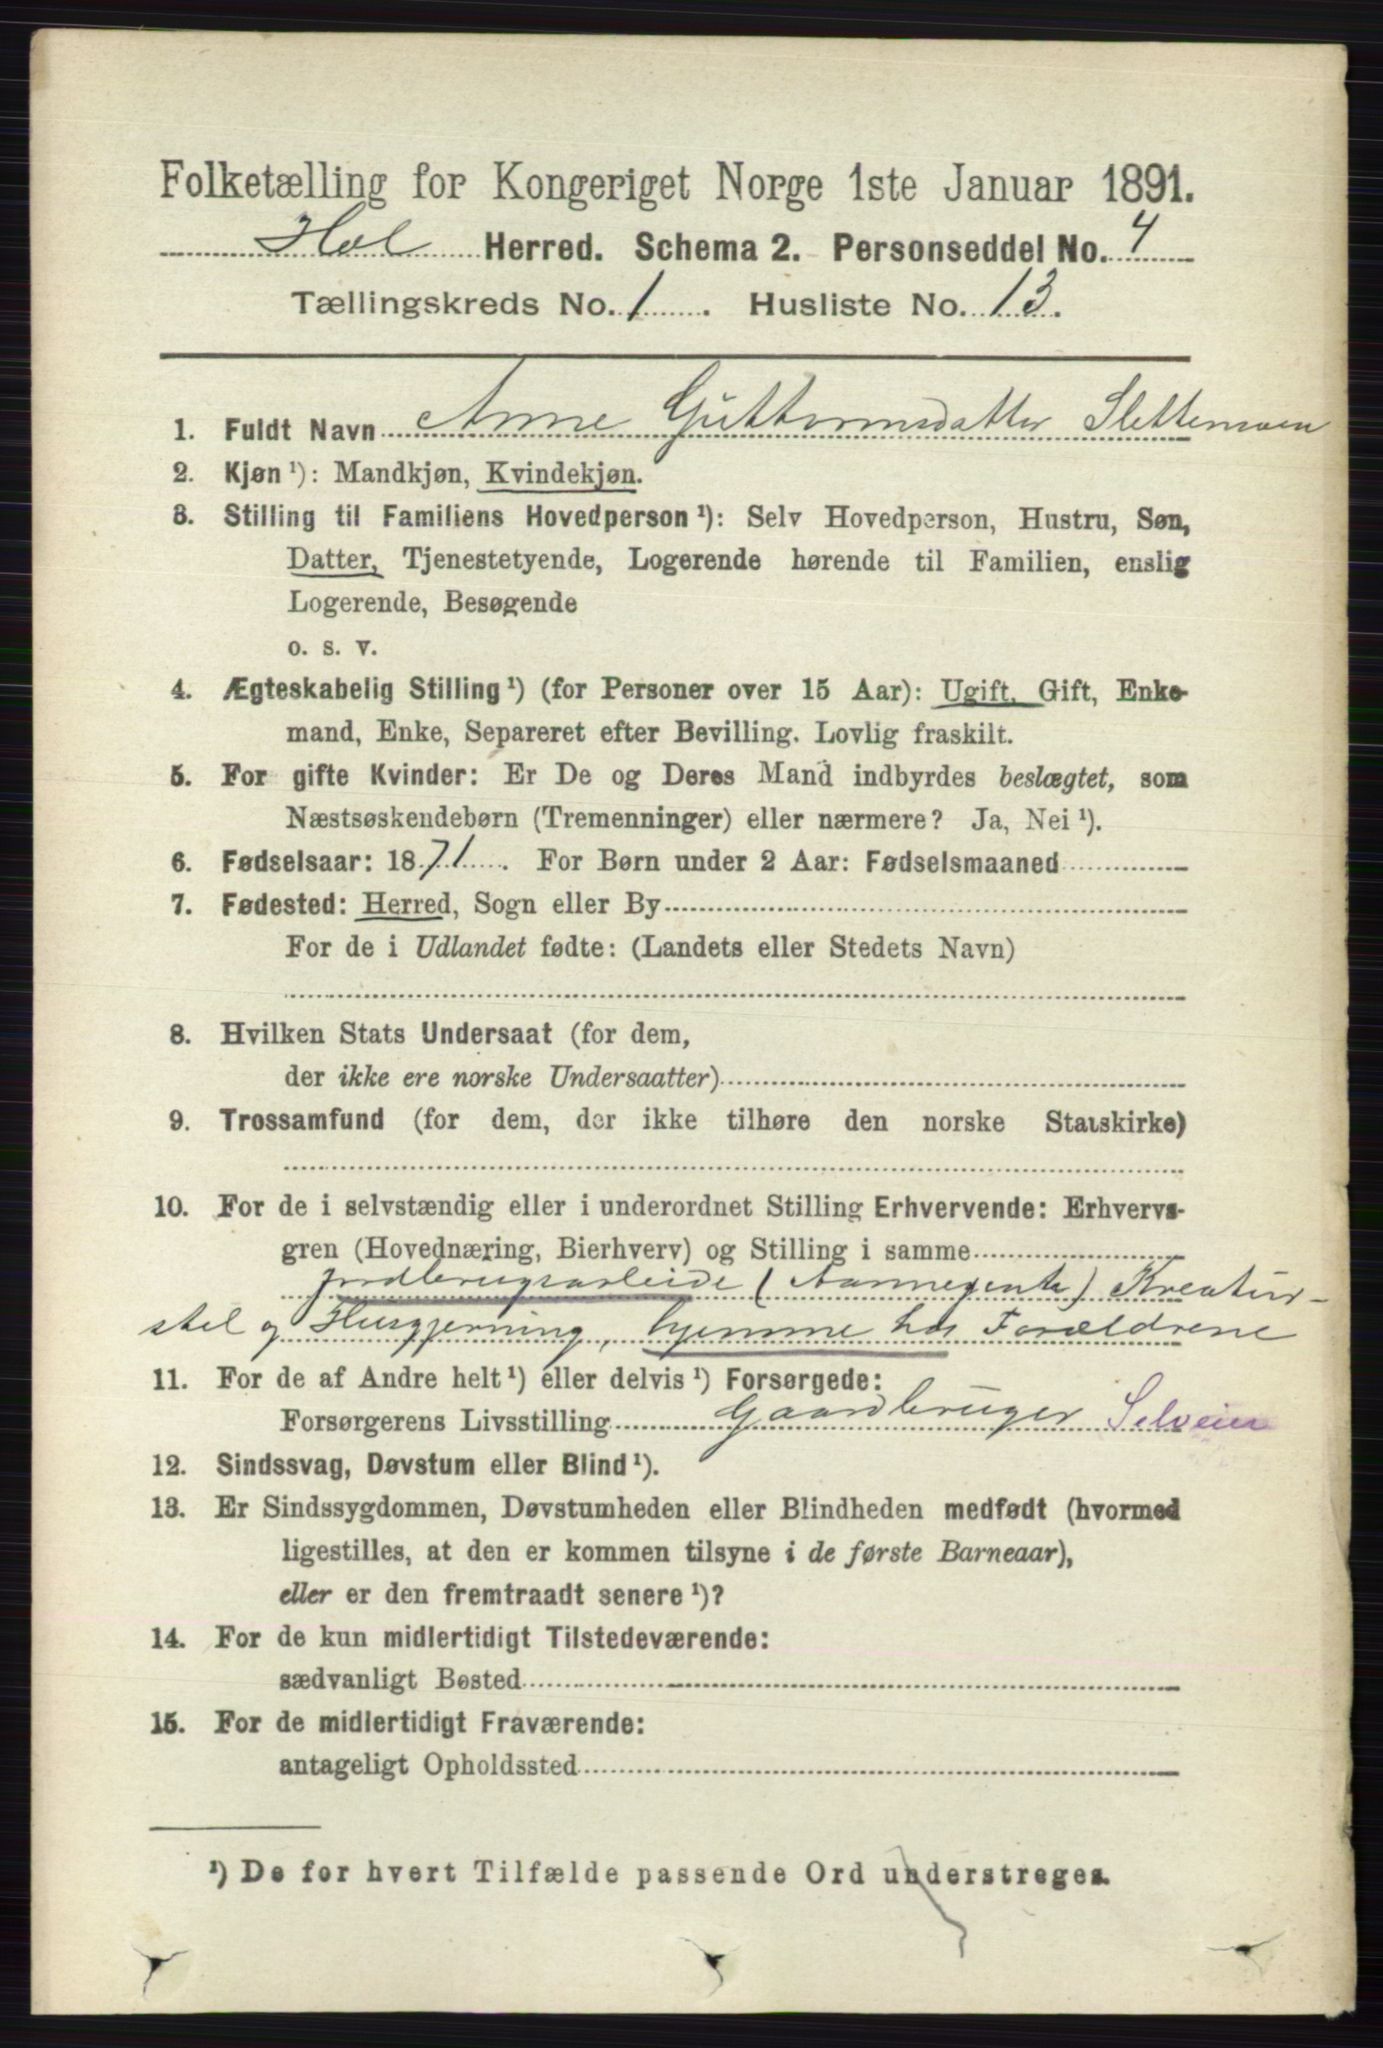 Folketælling for Kongeriget Norge 1ste Januar 1891.
Hol Herred. Schema 2. Personseddel No. 4
Tællingskreds No. 1. Husliste No. 13.
1. Fuldt Navn Anne Guttormsdatter Slettemoen
2. Kjøn ¹): Mandkjøn, Kvindekjøn.
3. Stilling til Familiens Hovedperson ¹): Selv Hovedperson, Hustru, Søn,
Datter, Tjenestetyende, Logerende hørende til Familien, enslig
Logerende, Besøgende
o. s. v.
4. Ægteskabelig Stilling ¹) (for Personer over 15 Aar): Ugift, Gift, Enke-
mand, Enke, Separeret efter Bevilling. Lovlig fraskilt.
5. For gifte Kvinder: Er De og Deres Mand indbyrdes beslægtet, som
Næstsøskendebørn (Tremenninger) eller nærmere? Ja, Nei ¹).
6. Fødselsaar: 1871. For Børn under 2 Aar: Fødselsmaaned
7. Fødested: Herred, Sogn eller By
For de i Udlandet fødte: (Landets eller Stedets Navn)
8. Hvilken Stats Undersaat (for dem,
der ikke ere norske Undersaatter)
9. Trossamfund (for dem, der ikke tilhøre den norske Statskirke)
10. For de i selvstændig eller i underordnet Stilling Erhvervende: Erhvervs-
gren (Hovednæring, Bierhverv) og Stilling i samme
Jordbrugsarbeide (Aannegente) Kreatur-
stel og Husgjerning, hjemme hos Forældrene
11. For de af Andre helt ¹) eller delvis ¹) Forsørgede:
Forsørgerens Livsstilling Gaardbruger Selveier
12. Sindssvag, Døvstum eller Blind ¹).
13. Er Sindssygdommen, Døvstumheden eller Blindheden medfødt (hvormed
ligestilles, at den er kommen tilsyne i de første Barneaar),
eller er den fremtraadt senere ¹)?
14. For de kun midlertidigt Tilstedeværende:
sædvanligt Bosted
15. For de midlertidigt Fraværende:
antageligt Opholdssted
¹) De for hvert Tilfælde passende Ord understreges.